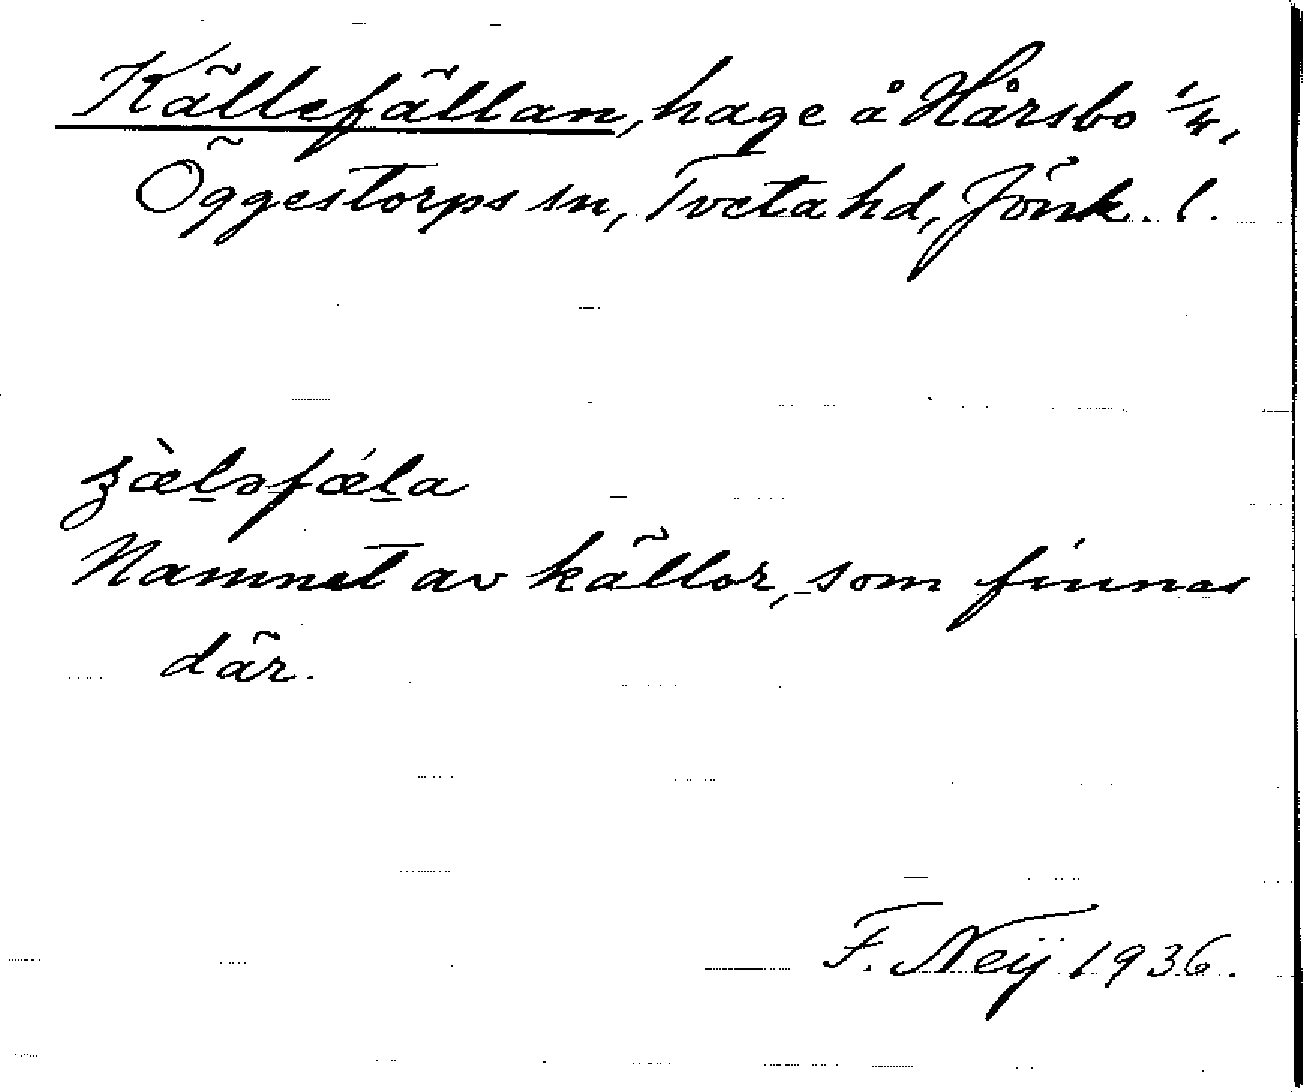 Källefällan, hage å Hårsbo 1/4,
Öggestorps sn, Tveta hd, Jönk. l.
ʒæ̀l̠əfǽl̠a
Namnet av källor, som finnes
där.
F. Neij 1936.